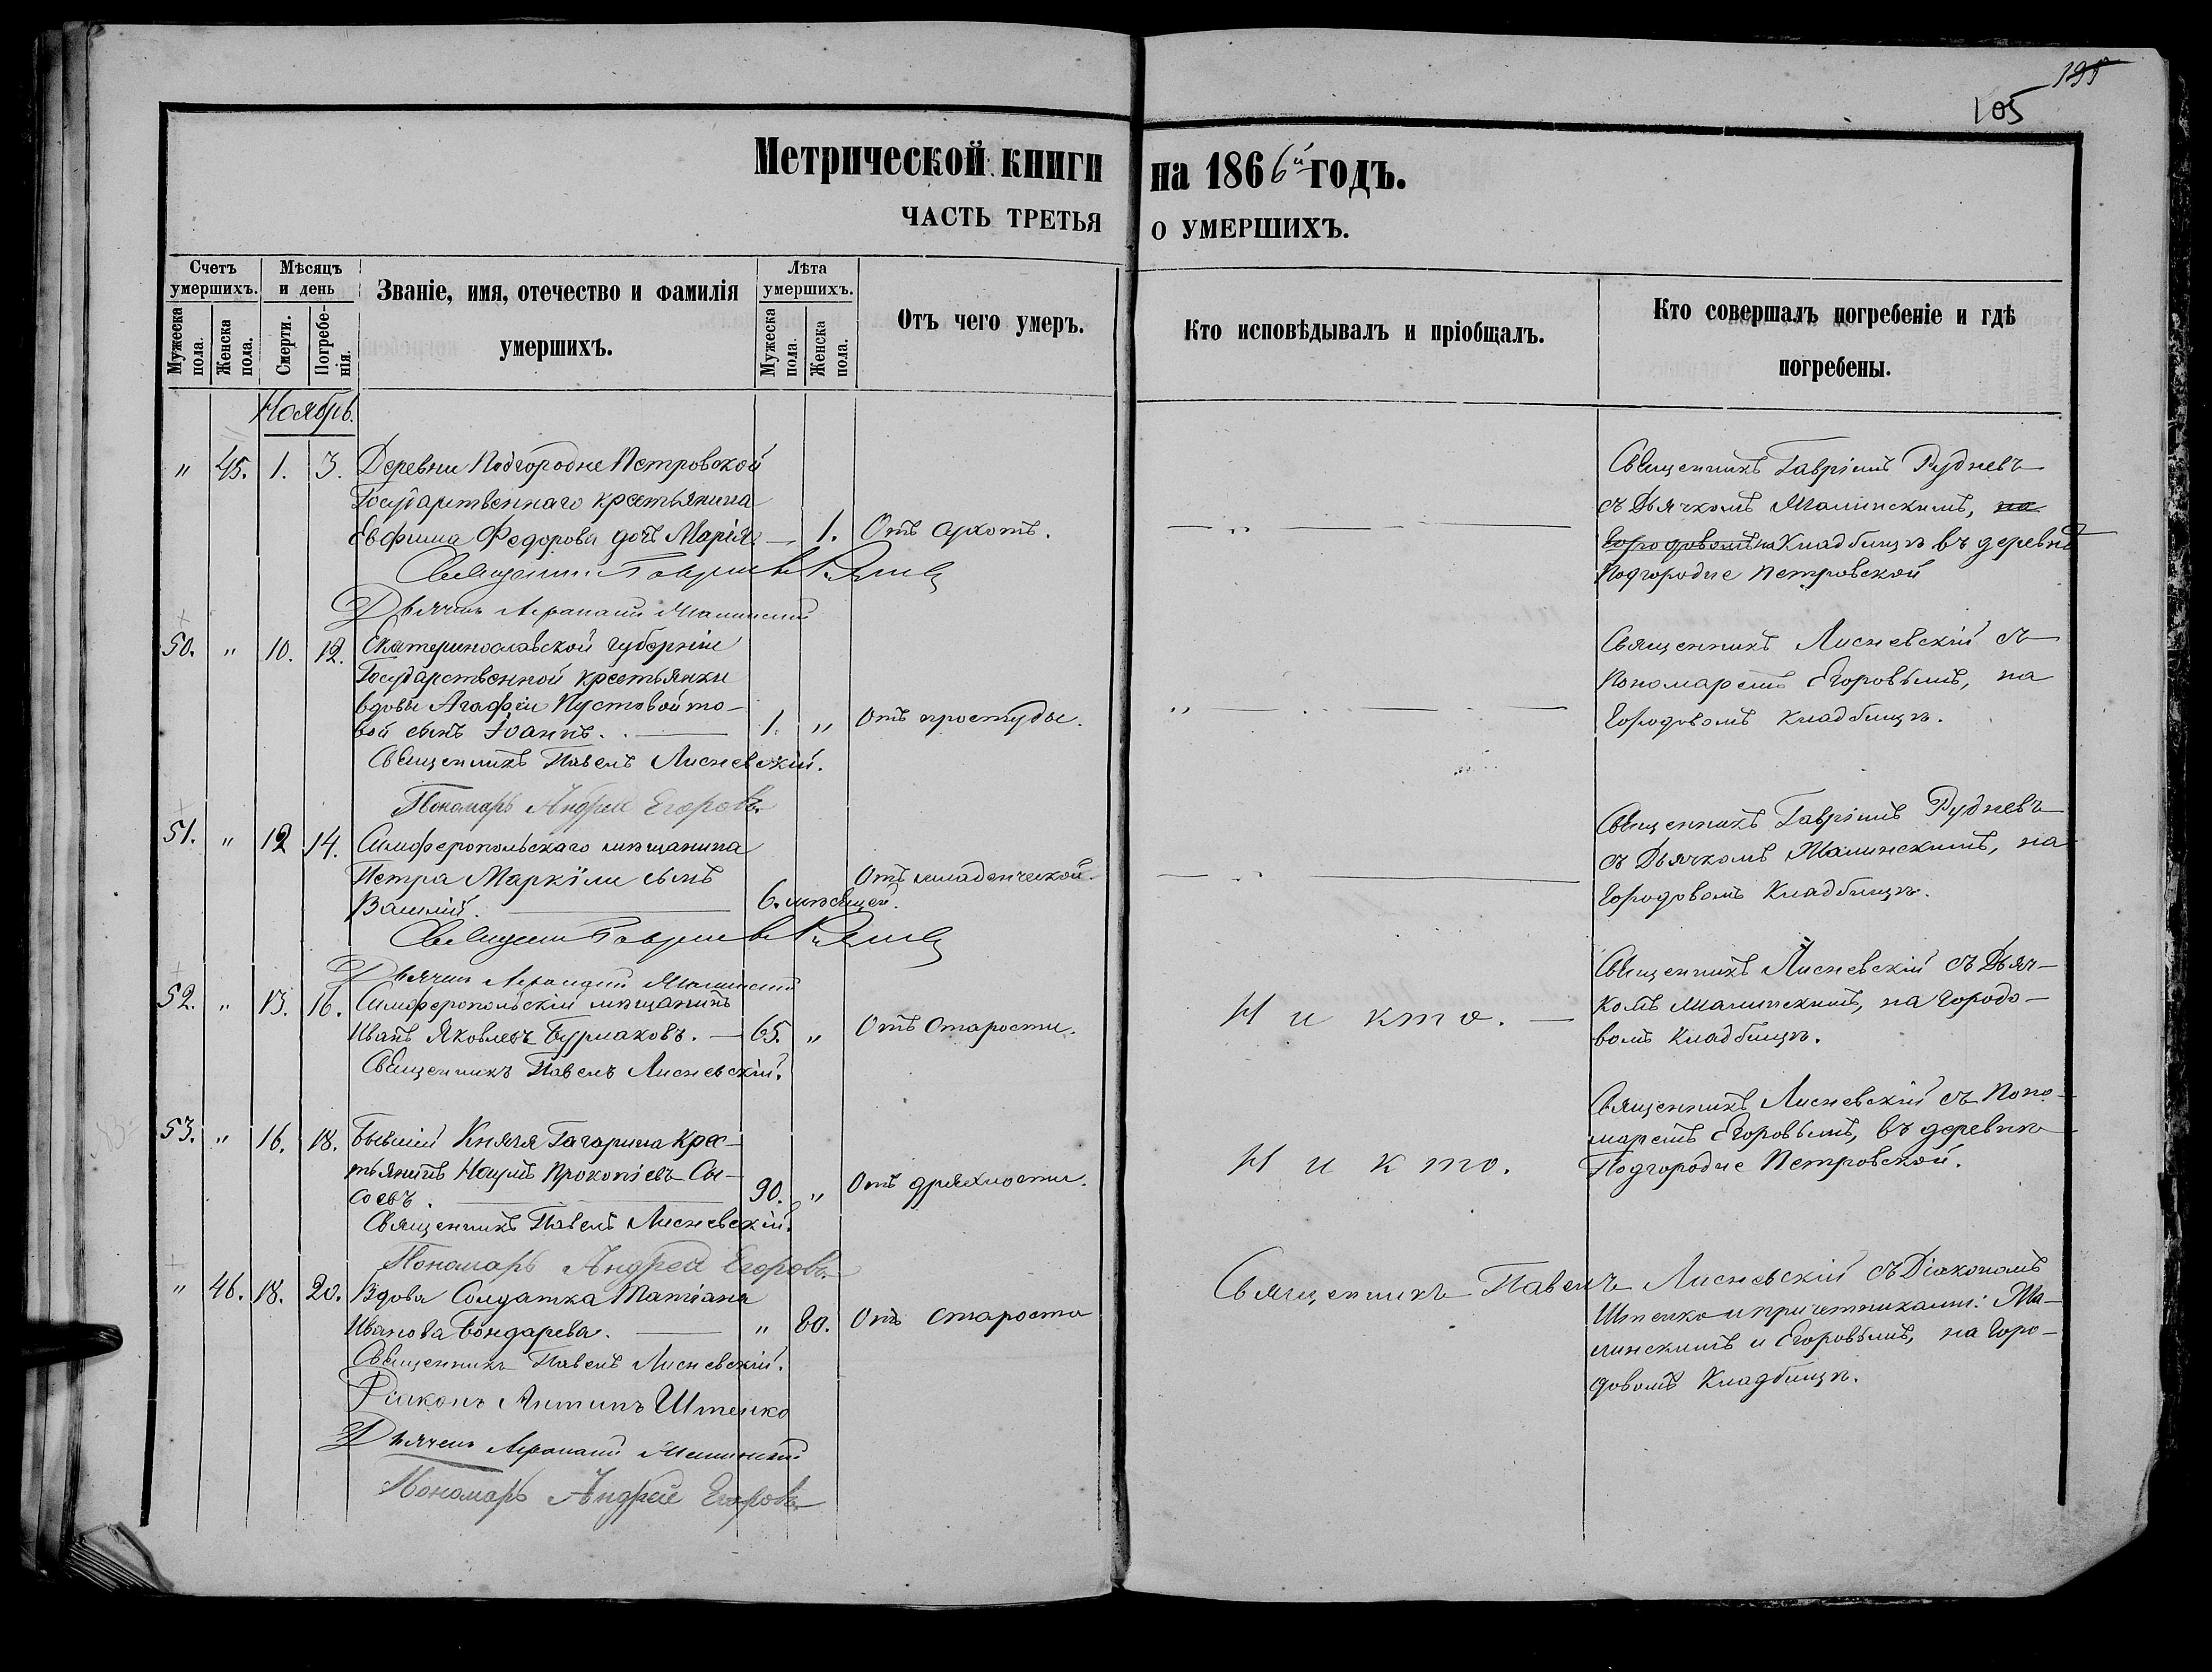 195
105
Метрической книги на 1866й годъ.
ЧАСТЬ ТРЕТЬЯ О УМЕРШИХЪ.
Счетъ умершихъ.
Мужеска пола.
Женска пола.
Мѣсяцъ и день
Смерти.
Погребенія.
Званіе, имя, отечество и фамилія умершихъ.
Лѣта умершихъ.
Мужеска пола.
Женска пола.
Отъ чего умеръ.
Кто исповѣдывалъ и пріобщалъ.
Кто совершалъ погребеніе и гдѣ погребены.
Ноябрь.
" 45. 1. 3. Деревни Подгородне Петровской
Государственнаго крестьянина
Евфима Федорова дочь Марія. — 1. Отъ сухотъ.
Священникъ Гавріилъ Рудневъ
съ Дьячкомъ Малинскимъ, на
Городовомъ на Кладбищѣ въ деревнѣ
Подгородне Петровской
Священникъ Гавріилъ Рудневъ
Дьячекъ Малинскій
50. " 10. 12. Екатеринославской губерніи
Государственной крестьянки
вдовы Агафіи Пустовойто-
вой сынъ Іоаннъ. 1. " Отъ простуды.
Священникъ Лисневскій съ
Пономаремъ Егоровымъ, на
Городовомъ Кладбищѣ.
Священникъ Павелъ Лисневскій.
Пономарь Андрей Егоровъ.
51. " 12 14. Симферопольскаго мѣщанина
Петра Маркіли сынъ
Василій. 6. мѣсяцей. Отъ младенческой.
Священникъ Гавріилъ Рудневъ
съ Дьячкомъ Малинскимъ, на
Городовомъ Кладбищѣ.
Священникъ Гавріилъ Рудневъ
Дьячекъ Малинскій
52. " 13. 16. Симферопольскій мѣщанинъ
Иванъ Яковлевъ Бурлаковъ. — 65. " Отъ старости.
Никто. —
Священникъ Лисневскій съ Дьяч-
комъ Малинскимъ, на Городо-
вомъ Кладбищѣ.
Священникъ Павелъ Лисневскій.
53. " 16. 18. Бывшій Князя Гагарина Крес-
тьянинъ Наумъ Прокопіевъ Сы-
соевъ. 90. " Отъ дряхлости.
Никто.
Священникъ Лисневскій съ Поно-
маремъ Егоровымъ, въ деревнѣ
Подгородне Петровской.
Священникъ Павелъ Лисневскій.
Пономарь Андрей Егоровъ.
" 46. 18. 20. Вдова Солдатка Татіана
Иванова Бондарева. " 80. Отъ старости
Священникъ Павелъ Лисневскій съ Діакономъ
Штепко и причетниками: Ма-
линскимъ и Егоровымъ, на Горо-
довомъ Кладбищѣ.
Священникъ Павелъ Лисневскій.
Діаконъ Антипъ Штепко
Дьячекъ Малинскій
Пономарь Андрей Егоровъ